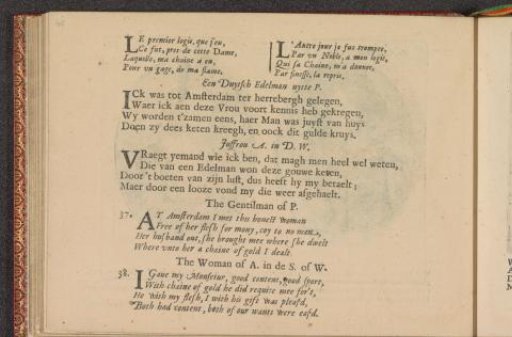 LE premier logis, que j'eu,
Ce fut, pres de cette Dame,
Laquelle, ma chaine a eu,
Pour un gage, de ma flame.
L'Autre jour je fus trompée,
Par un Noble, a mon logis,
Qui sa Chaine, m'a donnée,
Par finesse, la repris.
Een Duytsch Edelman uytte P.
ICk was tot Amsterdam ter herrebergh gelegen,
Waer ick aen deze Vrou voort kennis heb gekregen,
Wy worden t'zamen eens, haer Man was juyst van huys
Doen zy dees keten kreegh, en oock dit gulde kruys.
Joffrou A. in D. W.
VRaegt yemand wie ick ben, dat magh men heel wel weten,
Die van een Edelman won deze gouwe keten,
Door 't boeten van zijn lust, dus heeft hy my betaelt;
Maer door een looze vond my die weer afgehaelt.
The Gentilman of P.
37. AT Amsterdam I met this honest woman
Free of her flesh for mony, coy to no men,
Her husband out, she brought mee where she dwelt
Where unto her a chaine of gold I dealt.
The Woman of A. in de S. of W.
38. I Gave my Monsieur, good content, good sport,
With chaine of gold he did requite mee for't,
He with my flesh, I with his gift was pleasd,
Both had content, both of our wants were easd.